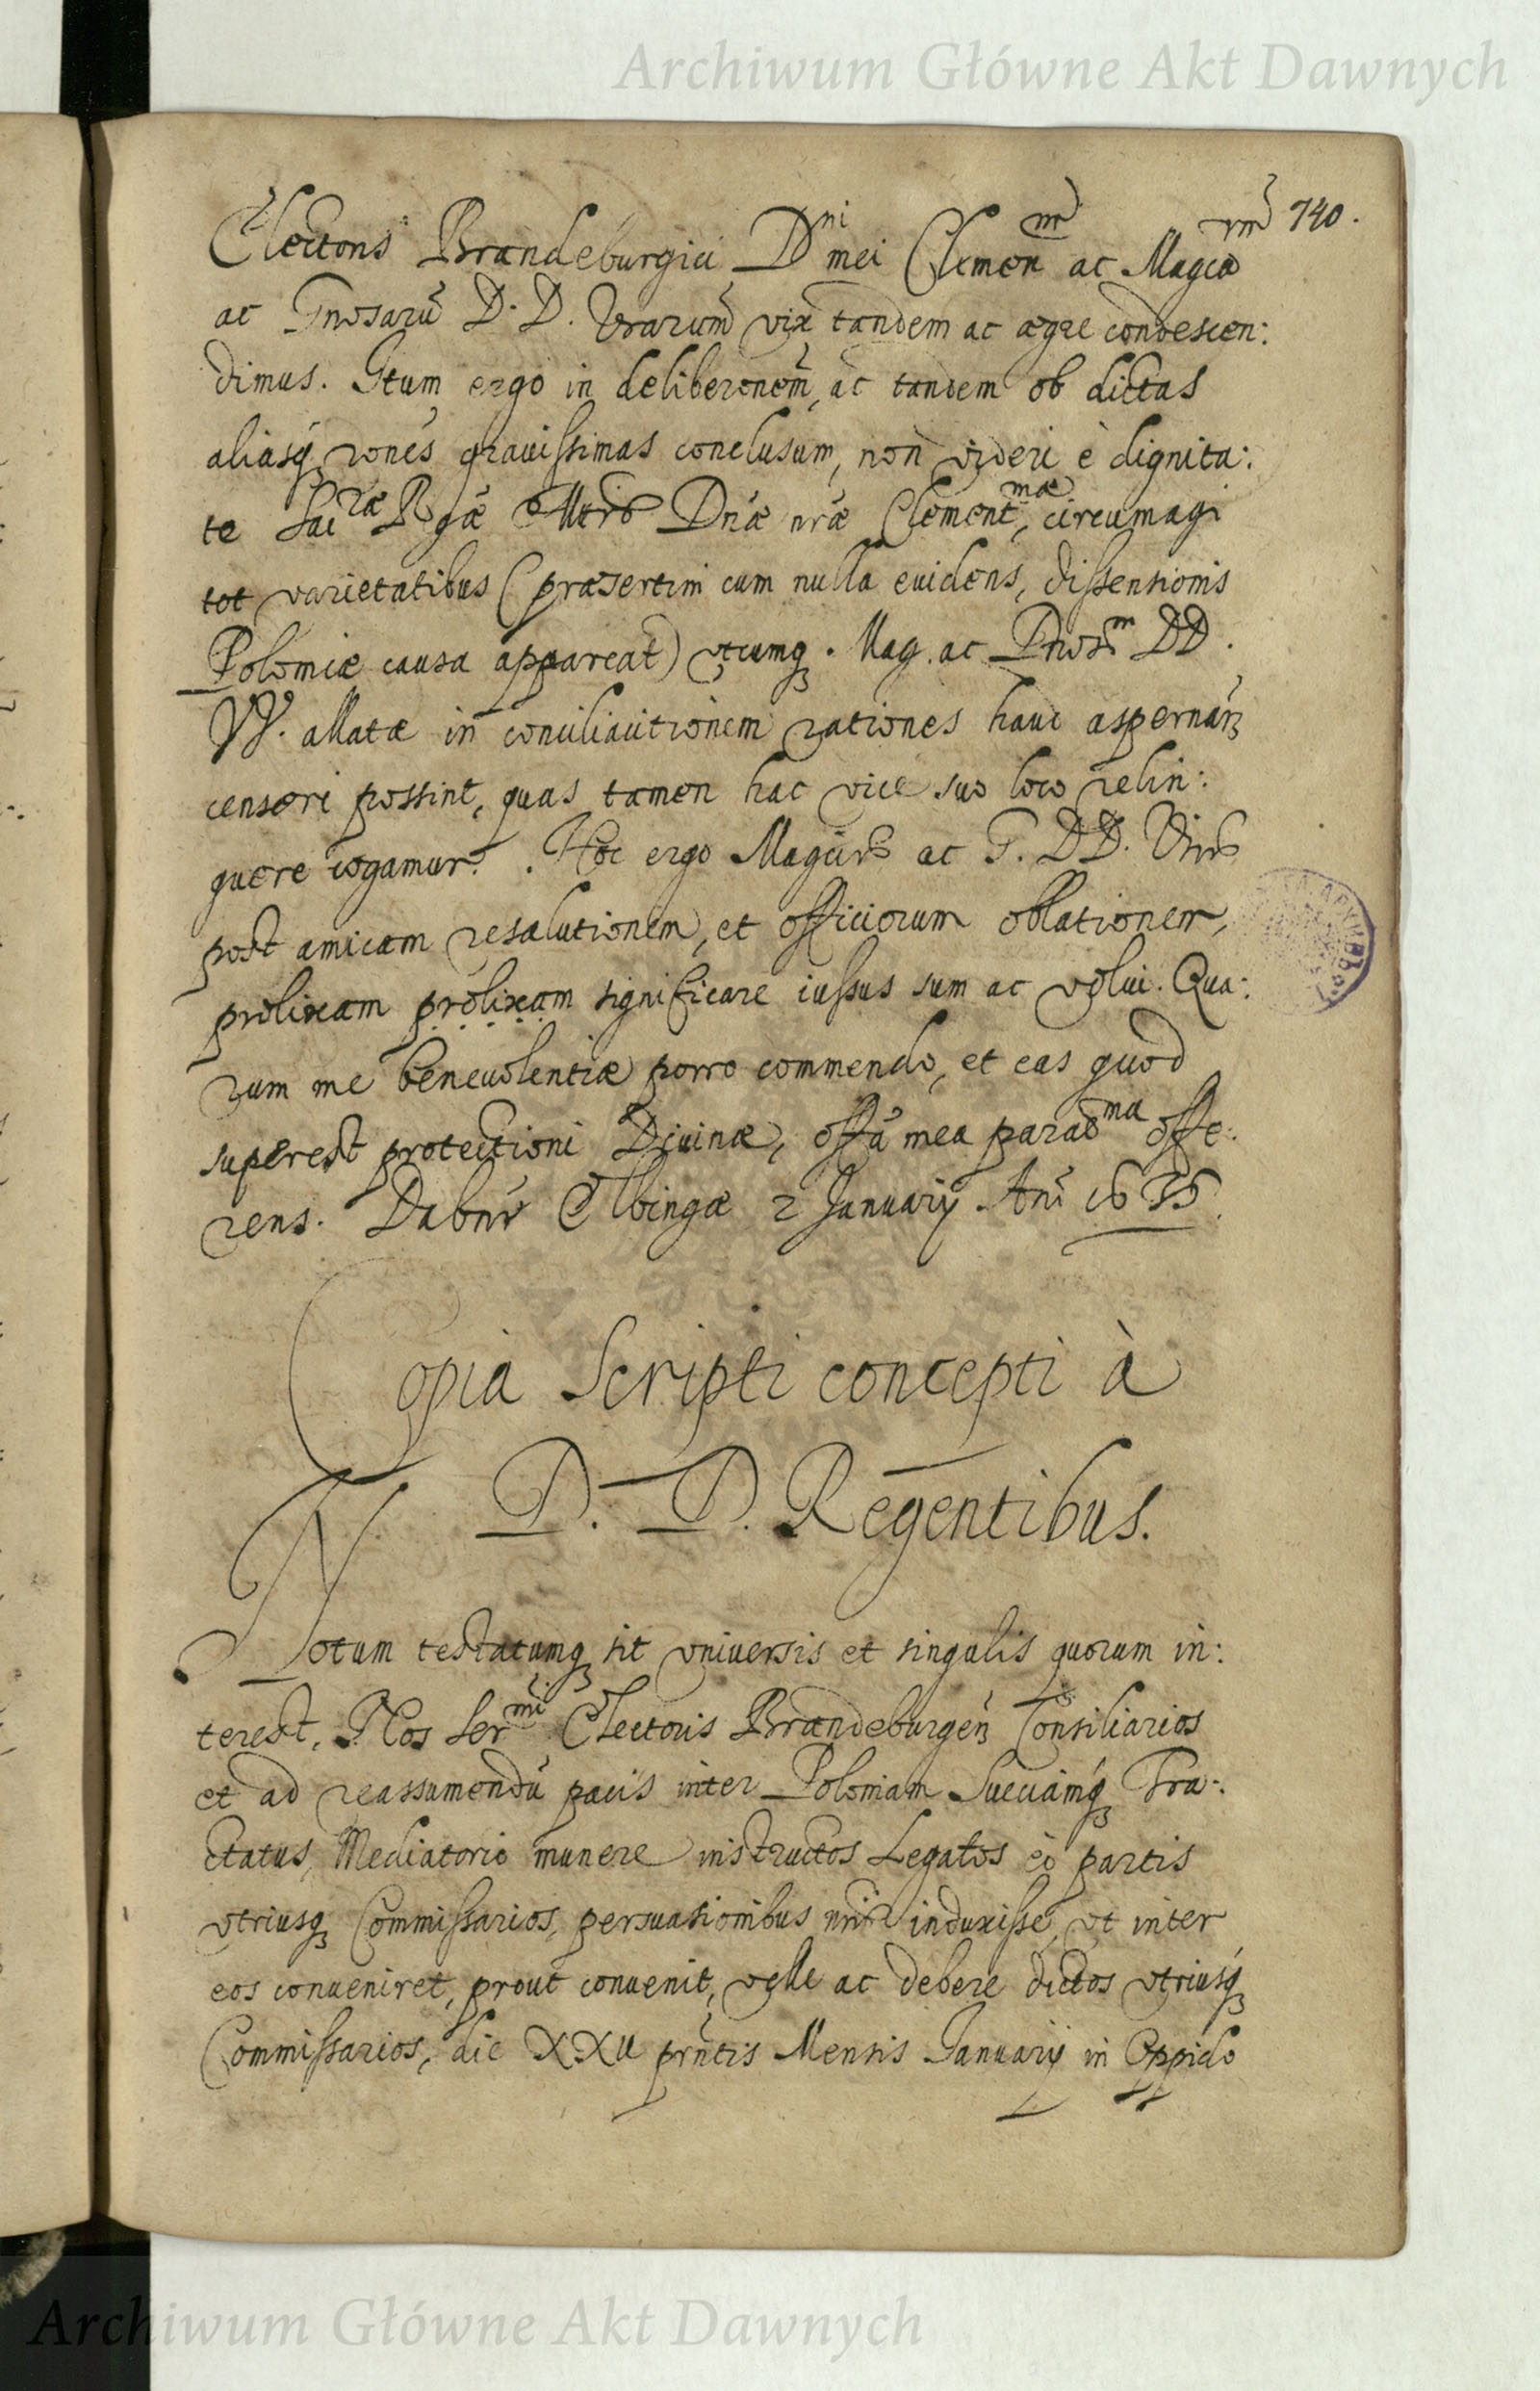 Archiwum Główne Akt Dawnych
740.
Electoris Brandeburgici Dni mei Clemen ac Magca
ac Gnosarū D. D. Vrarum vix tandem ac ægre condescen:
dimus. Itum ergo in deliberonem, ac tandem ob dictas
aliasq rones grauissimas conclusum, non videri è dignita:
te Sacræ Rgæ Mtis Dnæ nræ Clementmæ, circumagi
tot varietatibus (præsertim cum nulla euidens, dissensionis
Polonicæ causa appareat) vtcumq. Mag. ac DD.
VV. allatæ in rationes haud aspernan
censeri possint, quas tamen hac vice suo loco relin:
quere cogamur. Hoc ergo Magcis ac G. DD. Vris
post amicam resalutionem, et officiorum oblationem,
prolixam prolixam significare iussus sum ac volui. Qua:
rum me beneuolentiæ porro commendo, et eas quod
superest protectioni Diuinæ, offa mea paradma offe:
rens. Dabnr Elbingæ 2 Januarij Ani 1635.
Copia Scripti concepti à
D. D. Regentibus.
Notum testatumq sit vniuersis et singulis quorum in:
terest, Nos Sermi Electoris Brandeburgen Consiliarios
et ad reassumendū pacis inter Poloniam Sueciamq Tra:
ctatus, Mediatorio munere instructos Legatos eò partis
vtriusq Commissarios, persuasionibus nris induxisse, vt inter
eos conueniret, prout conuenit, velle ac debere dictos vtriusq
Commissarios, die XXII prntis Mensis Januarij in Oppido
Archiwum Główne Akt Dawnych